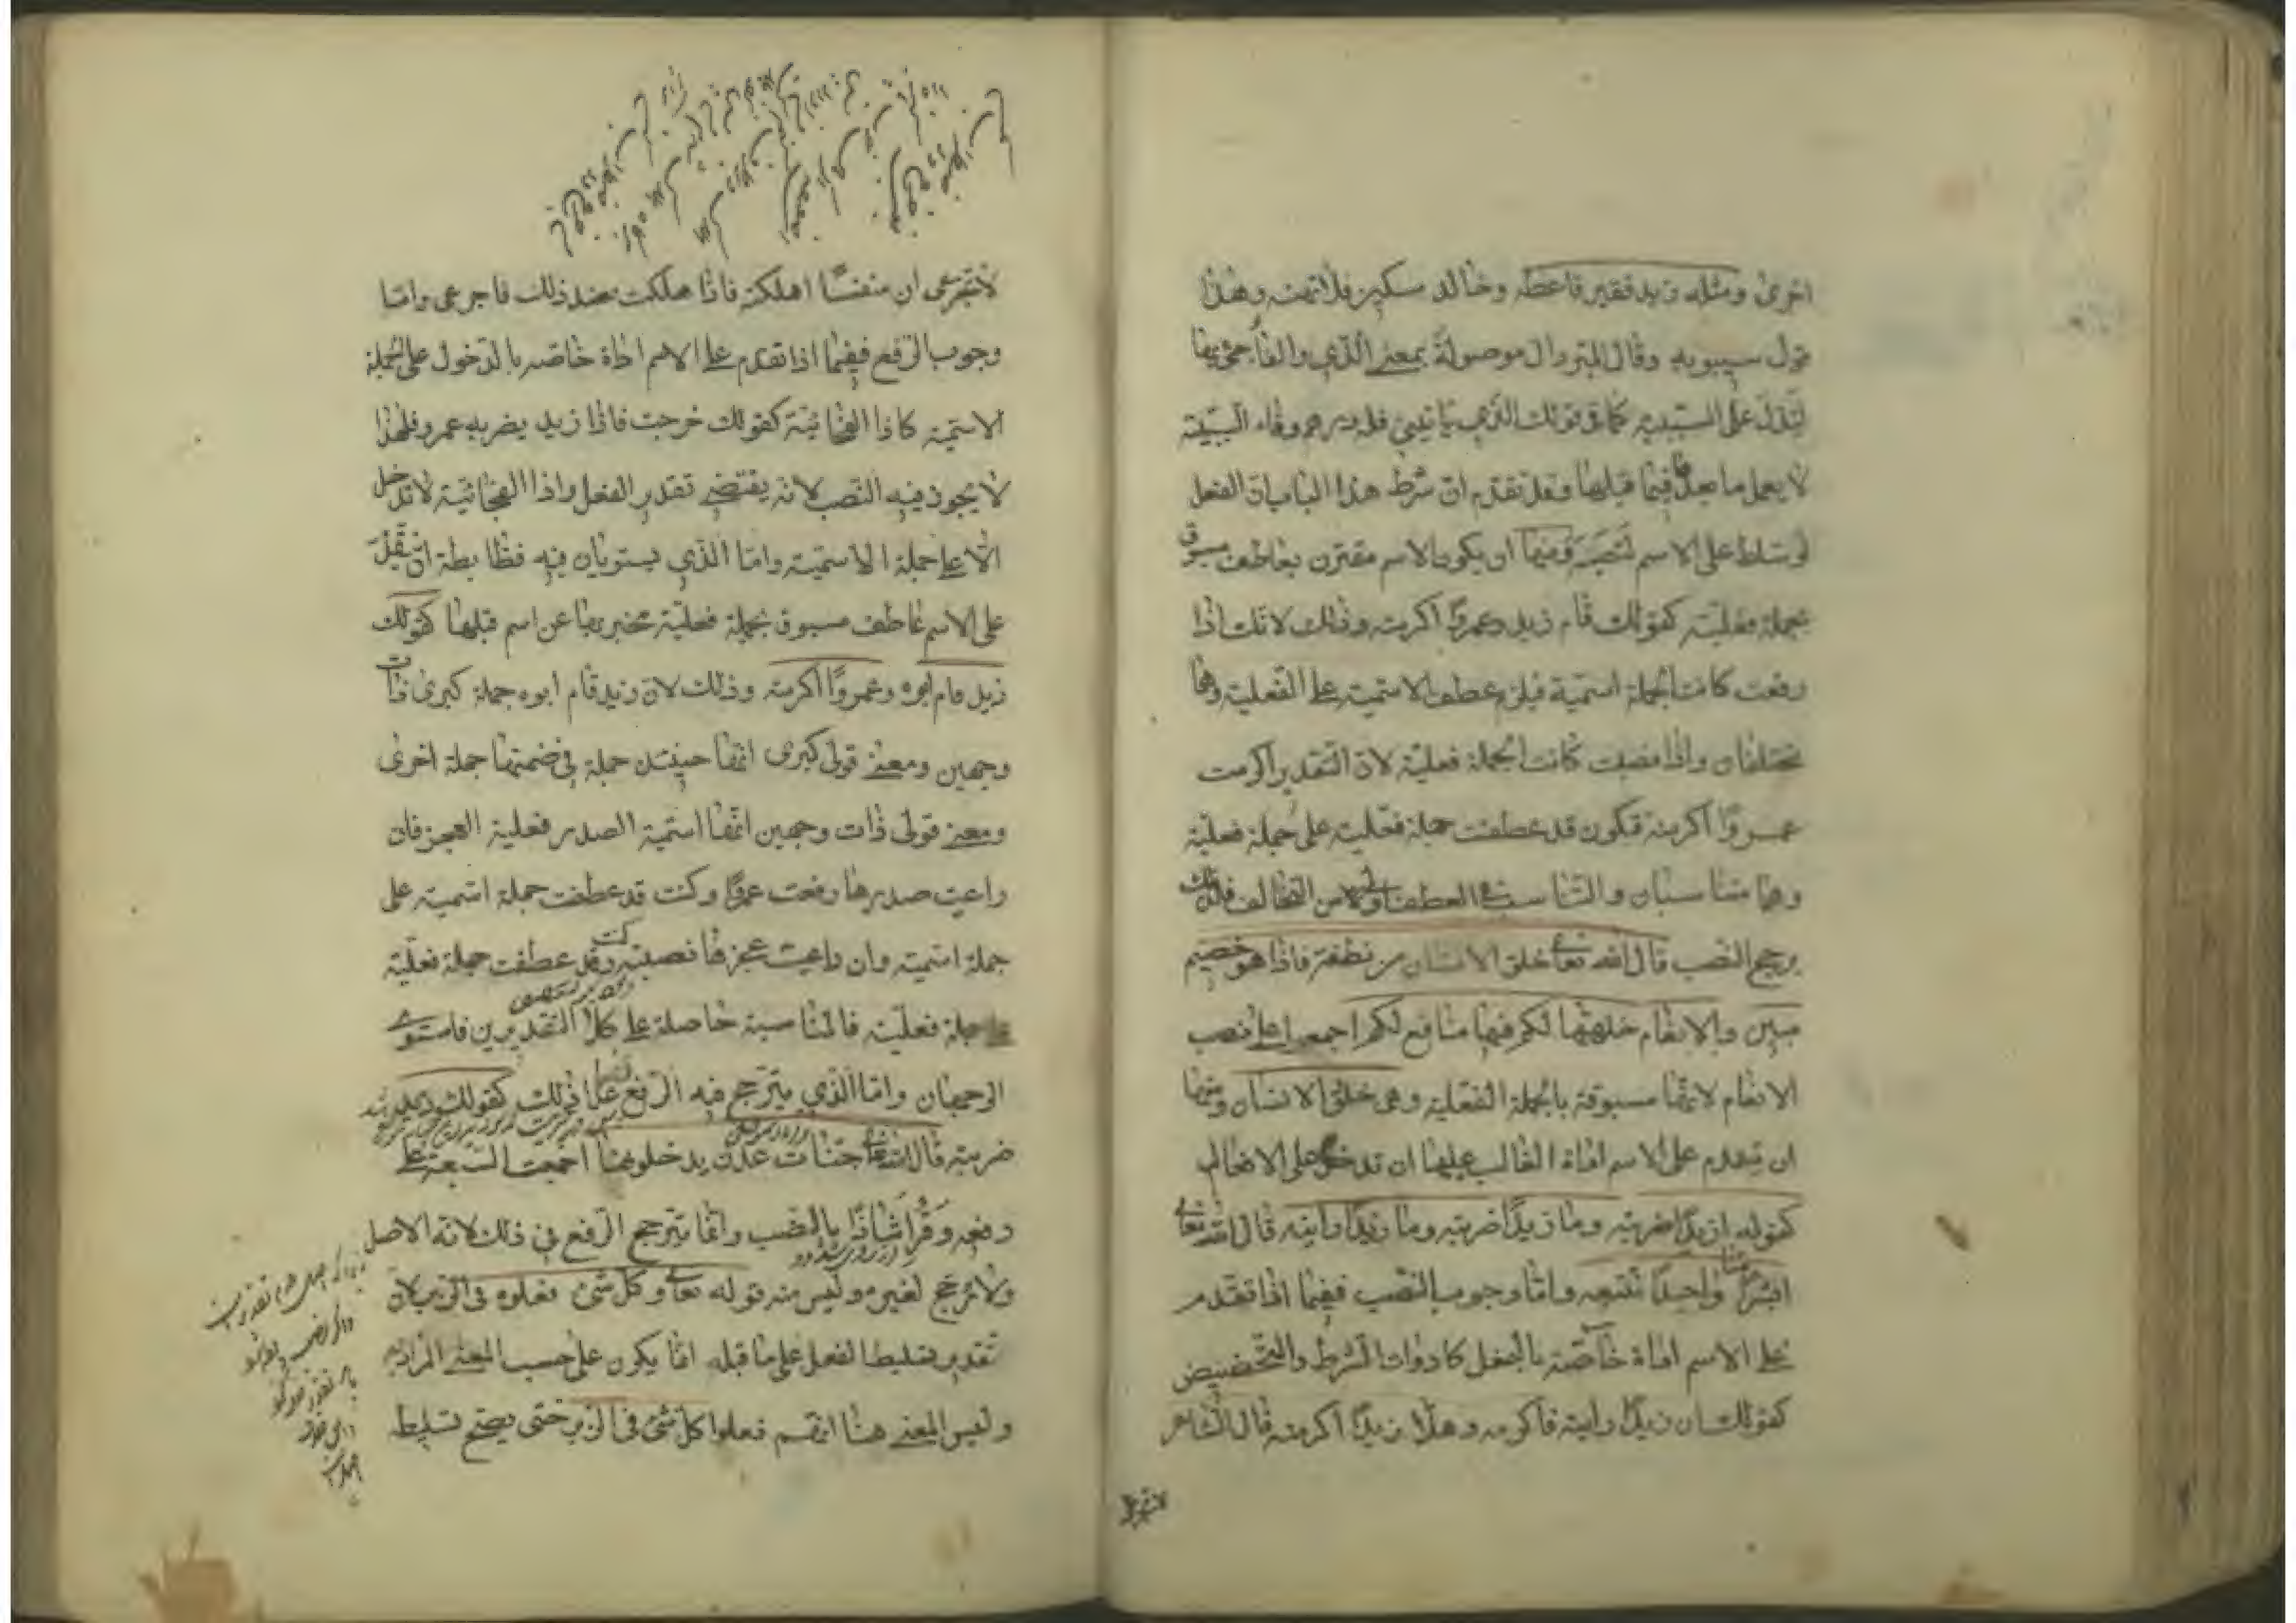 اخرى ومثله زيد فقير فاعطه وخالد مسكين فلا تهنه وهذا
قول سيبويه وقال المبرد ال موصولة بمعنى الذي والفاء جيء بها
لتدل على السببية كما في قولك الذي ياتيني فله درهم وفاء السببية
لا يعمل ما بعدها فيما قبلها وقد تقدم ان شرط هذا الباب ان الفعل
لو سلط على الاسم لنصبه ومنها ان يكون الاسم مقترن بعاطف مسبوق
بجملة فعلية كقولك قام زيد وعمروًا اكرمته وذلك لانك اذا
رفعت كانت الجملة اسمية فيلزم عطف الاسمية على الفعلية وهما
مختلفتان واذا نصبت كانت الجملة فعلية لان التقدير اكرمت
عمروًا اكرمته فيكون قد عطفت جملة فعلية على جملة فعلية
وهما متناسبتان والتناسب في العطف اولى من التخالف فلذلك
يرجح النصب قال الله تعالى خلق الانسان من نطفة فاذا هو خصيم
مبين والانعام خلقها لكم فيها منافع لكم اجمعوا على نصب
الانعام لانها مسبوقة بالجملة الفعلية وهي خلق الانسان ومنها
ان يتقدم على الاسم اداة الغالب عليها ان تدخل على الافعال
كقوله ازيدًا ضربته وما زيدًا ضربته وما زيدًا رايته قال الله تعالى
ابشرًا منا واحدًا نتبعه واما وجوب النصب ففيما اذا تقدم
على الاسم اداة خاصة بالفعل كادوات الشرط والتحضيض
كقولك ان زيدًا رايته فاكرمه وهلا زيدًا اكرمته قال الشاعر
لا تجزعي
لا تجزعي ان منفسًا اهلكته فاذا هلكت فعند ذلك فاجزعي واما
وجوب الرفع ففيما اذا تقدم على الاسم اداة خاصة بالدخول على الجملة
الاسمية كاذا الفجائية كقولك خرجت فاذا زيد يضربه عمرو فلهذا
لا يجوز فيه النصب لانه يقتضي تقدير الفعل واذا الفجائية لا تدخل
الا على جملة الاسمية واما الذي يستويان فيه فضابطة ان تقدم
على الاسم عاطف مسبوق بجملة فعلية مخبر بها عن اسم قبلها كقولك
زيد قام ابوه وعمروًا اكرمته وذلك لان زيد قام ابوه جملة كبرى ذات
وجهين ومعنى قولي كبرى انها حينئذ جملة في ضمنها جملة اخرى
ومعنى قولي ذات وجهين انها اسمية الصدر فعلية العجز فان
راعيت صدرها رفعت عمروًا وكنت قد عطفت جملة اسمية على
جملة اسمية وان راعيت عجزها نصبته وكنت قد عطفت جملة فعلية
على جملة فعلية فالمناسبة حاصلة على كلا التقديرين فاستوى
الوجهان واما الذي يترجح فيه الرفع فما عدا ذلك كقولك زيد
ضربته قال الله تعالى جنات عدن يدخلونها اجمعت السبعة على
رفعه وقرا شاذا بالنصب وانما يترجح الرفع في ذلك لانه الاصل
ولا مرجح لغيره وليس منه قوله تعالى وكل شئ فعلوه في الزبر لان
تقدير تسليط الفعل على ما قبله انما يكون على حسب المعنى المراد
وليس المعنى هنا انهم فعلوا كل شئ في الزبر حتى يصح تسليطه